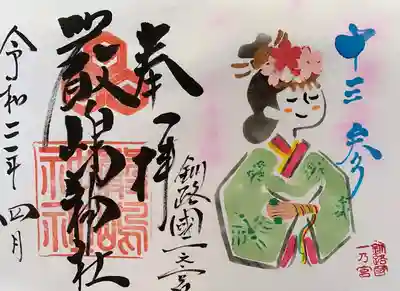 十三参り
奉拝
釧路國一之宮
厳嶋神社
令和二年四月
釧路國
一乃宮